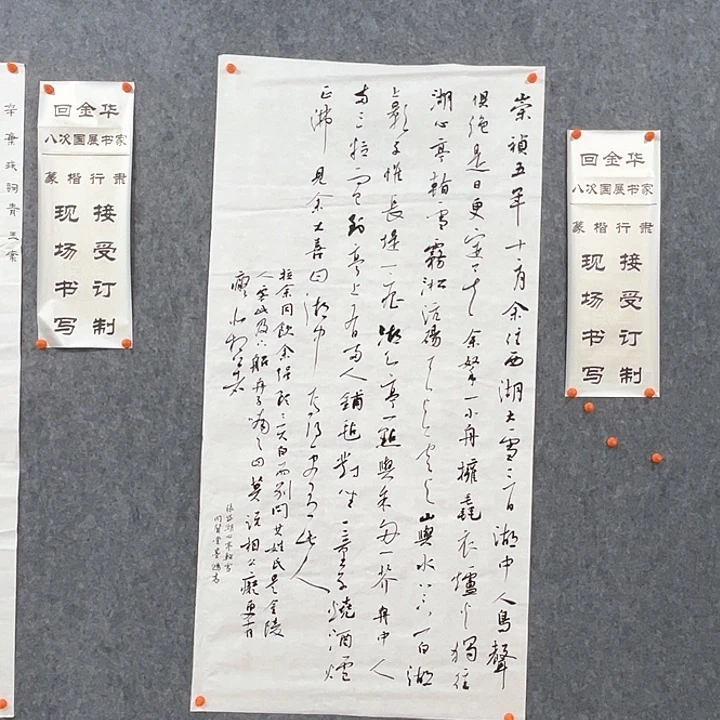 辛棄疾詞青玉案
回金华
八次国展书家
篆楷行隶
现场书写
接受订制
崇禎五年十二月余住西湖大雪三日湖中人鳥聲
俱絕是日更定矣余拏一小舟擁毳衣爐火獨往
湖心亭看雪霧淞沆碭天與雲與山與水上下一白湖
上影子惟長堤一痕湖心亭一點與余舟一芥舟中人
兩三粒而已到亭上有兩人鋪氈對坐一童子燒酒爐
正沸見余大喜曰湖中焉得更有此人
拉余同飲余強飲三大白而別問其姓氏是金陵
人客此及下船舟子喃喃曰莫說相公癡更有
癡似相公者
張岱湖心亭看雪
回金华
八次国展书家
篆楷行隶
现场书写
接受订制